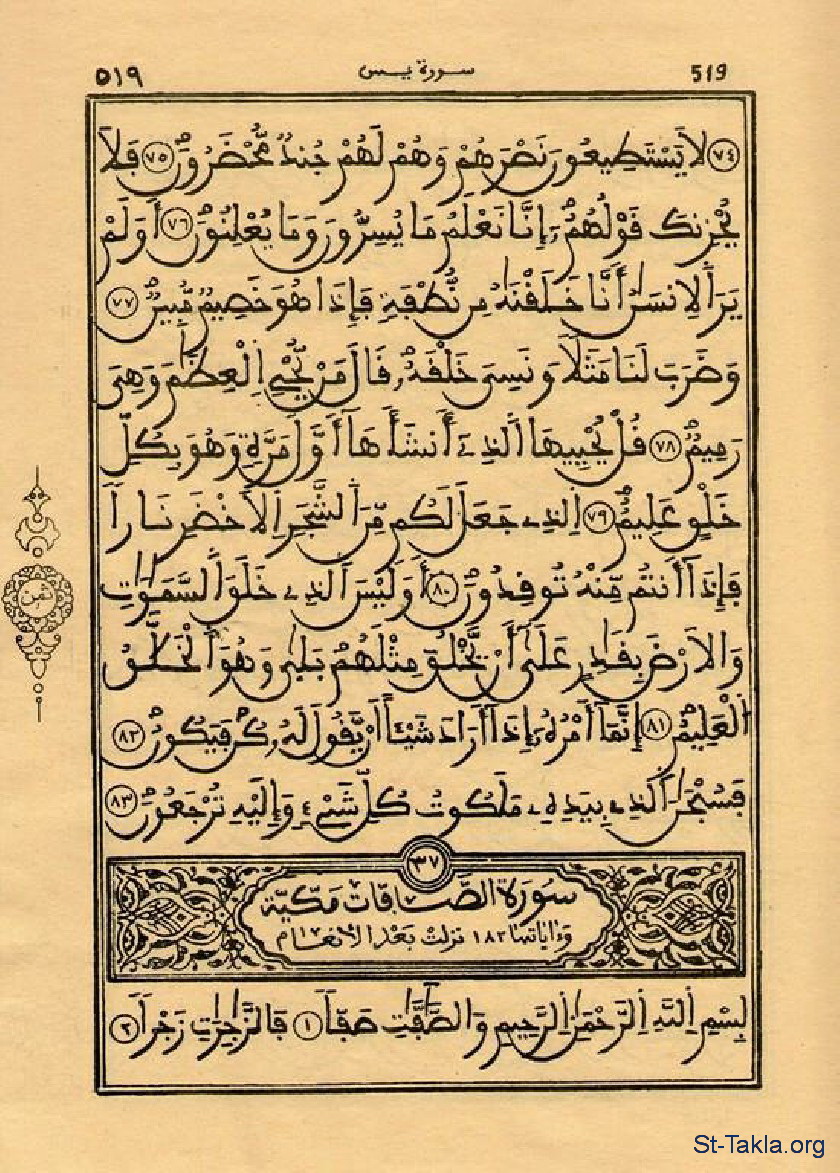 ٥١٩ سورة يس 519
٧٤ لَا يَسْتَطِيعُونَ نَصْرَهُمْ وَهُمْ لَهُمْ جُندٌ مُّحْضَرُونَ ٧٥ ڢَلَا
يُحْزِنكَ فَوْلُهُمُۥٓ إِنَّا نَعْلَمُ مَا يُسِرُّونَ وَمَا يُعْلِنُونَ ٧٦ أَوَلَمْ
يَرَ أَلِانسَٰنُ أَنَّا خَلَفْنَٰهُ مِن نُّطْڢَةٍ ڢَإِذَا هُوَ خَصِيمٌ مُّبِينٌ ٧٧
وَضَرَبَ لَنَا مَثَلًا وَنَسِىَ خَلْفَهُۥ فَالَ مَنْ يُّحْيِ اِلْعِظَٰمَ وَهِىَ
رَمِيمٌ ٧٨ فُلْ يُحْيِيهَا أَلذِےٓ أَنشَأَهَآ أَوَّلَ مَرَّةٍ وَهُوَ بِكُلِّ
خَلْقٍ عَلِيمٌ ٧٩ اِلذِے جَعَلَ لَكُم مِّنَ أَلشَّجَرِ اِلَاخْضَرِ نَاراً
ڢَإِذَآ أَنتُم مِّنْهُ تُوفِدُونَ ٨٠ أَوَلَيْسَ أَلذِے خَلَقَ أَلسَّمَٰوَٰتِ
وَالَارْضَ بِفَٰدِرٍ عَلَىٰٓ أَنْ يَّخْلُقَ مِثْلَهُم بَلِىٰ وَهُوَ أَلْخَلَّٰقُ
اُلْعَلِيمُ ٨١ إِنَّمَآ أَمْرُهُۥٓ إِذَآ أَرَادَ شَيْـًٔا أَنْ يَّفُولَ لَهُۥ كُن ڢَيَكُونُ ٨٢
ڢَسُبْحَٰنَ أَلذِے بِيَدِهِۦ مَلَكُوتُ كُلِّ شَےْءٍ وَإِلَيْهِ تُرْجَعُونَ ٨٣
٣٧
سورة الصَّاڢات مكيّة
وءاياتها ١٨٢ نزلت بعد الأنعام
بِسْمِ اِللَّهِ اِلرَّحْمَٰنِ اِلرَّحِيمِ وَالصَّٰٓڢَّٰتِ صَڢّاً ١ ڢَالزَّٰجِرَٰتِ زَجْراً ٢
ثمن
St-Takla.org